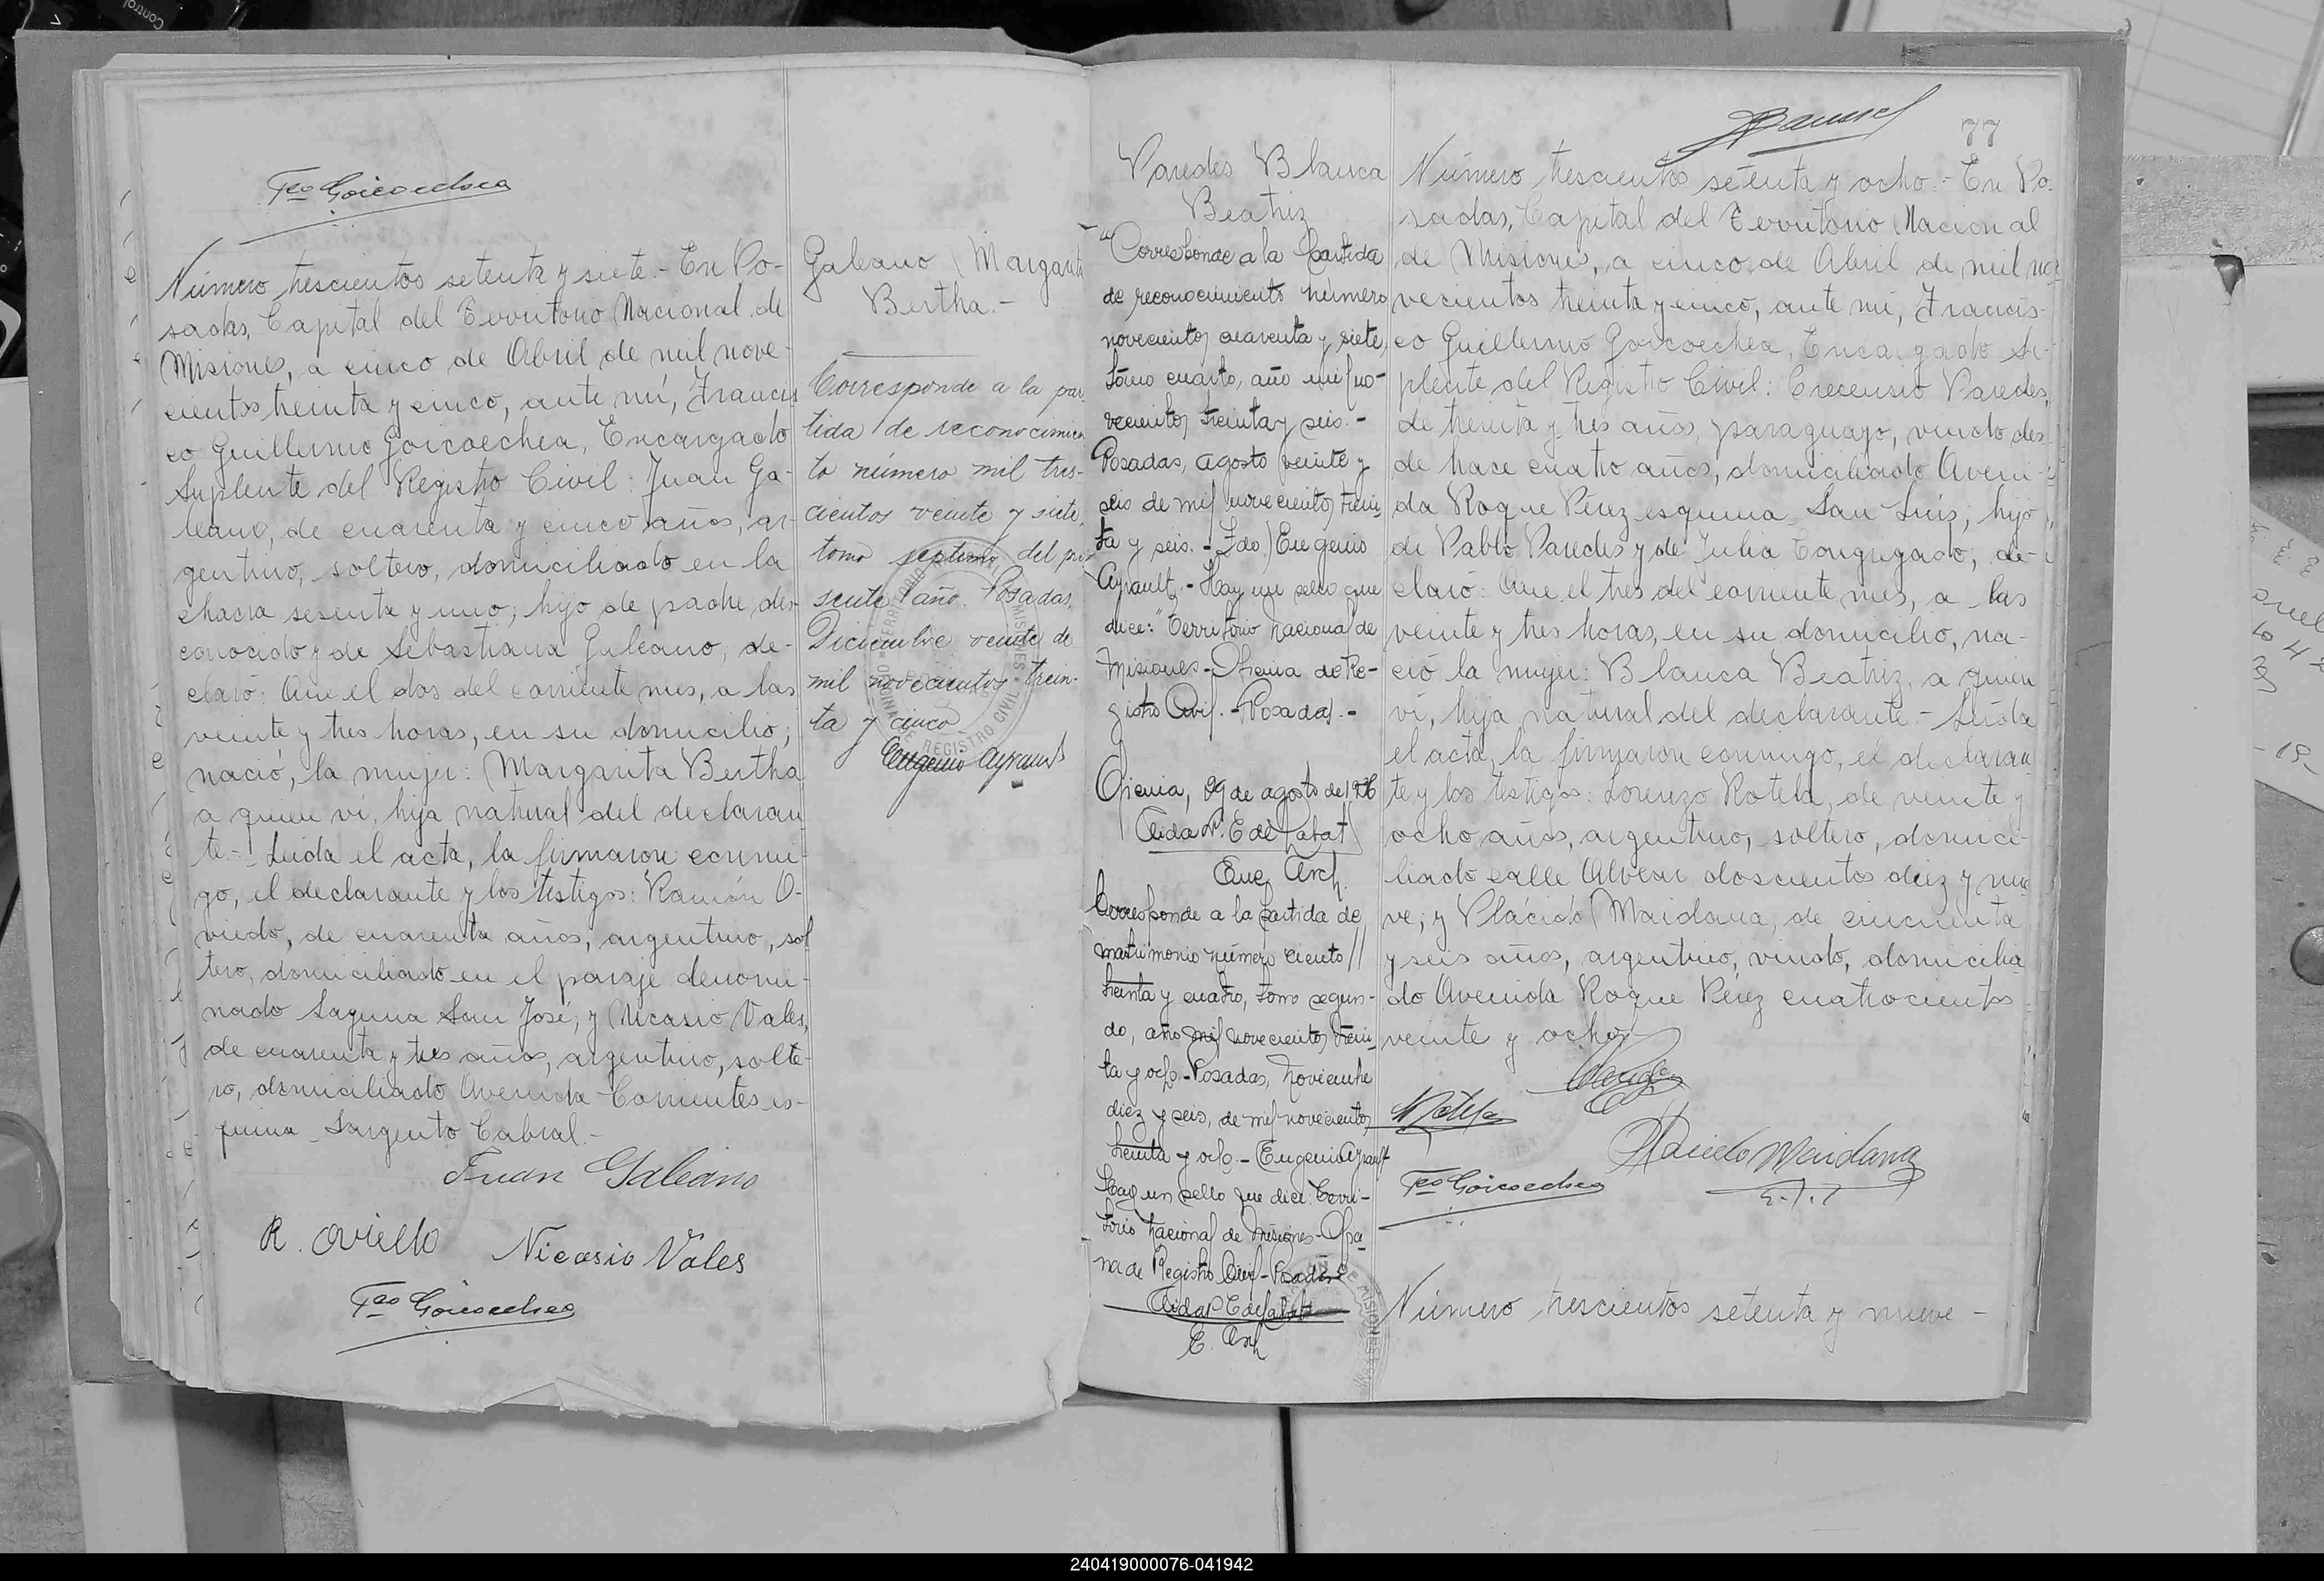 Fco Goicoechea
Número trescientos setenta y siete.- En Po-
sadas, Capital del Territorio Nacional de
Misiones, a cinco de Abril de mil nove-
cientos treinta y cinco, ante mí, Francis
co Guillermo Goicoechea, Encargado
Suplente del Registro Civil: Juan Ga-
leano, de cuarenta y cinco años, ar-
gentino, soltero, domiciliado en la
chacra sesenta y uno; hijo de padre des-
conocido y de Sebastiana Galeano, de-
claró: Que el dos del corriente mes, a las
veinte y tres horas, en su domicilio,
nació, la mujer: Margarita Bertha
a quien ví, hija natural del declaran
te.- Leída el acta, la firmaron conmi-
go, el declarante y los testigos: Ramón O-
viedo, de cuarenta años, argentino, sol
tero, domiciliado en el paraje denomi-
nado Laguna San José; y Nicasio Vales,
de cuarenta y tres años, argentino, solte-
ro, domiciliado Avenida Corrientes es-
quina Sargento Cabral.-
Juan Galeano
R. Oviedo
Nicasio Vales
Fco Goicoechea
Galeano Margarita
Bertha.-
Corresponde a la par
tida de reconocimien
to número mil tres-
cientos veinte y siete,
tomo septimo, del pre
sente año. Posadas,
Diciembre veinte de
mil novecientos trein-
ta y cinco
Eugenio Ayrault
Paredes Blanca
Beatriz
"Corresponde a la partida
de reconocimiento número
novecientos cuarenta y siete,
tomo cuarto, año mil no-
vecientos treinta y seis.-
Posadas, agosto veinte y
seis de mil novecientos trein-
ta y seis.- Fdo.) Eugenio
Ayrault.- Hay un sello que
dice: "Territorio Nacional de
Misiones - Oficina de Re-
gistro Civil.- Posadas.-
Oficina, de agosto de
Aida
Enc. Arch.
Corresponde a la partida de
matrimonio número ciento //
treinta y cuatro, tomo segun-
do, año mil novecientos trein-
ta y ocho.- Posadas, noviembre
diez y seis, de mil novecientos
treinta y ocho.- Eugenio Ayrault
Hay un sello que dice: Terri-
torio Nacional de Misiones - Ofici-
na de Registro Civil - Posadas
E. Arch
77
Número trescientos setenta y ocho.- En Po-
sadas, Capital del Territorio Nacional
de Misiones, a cinco de Abril de mil no-
vecientos treinta y cinco, ante mí, Francis-
co Guillermo Goicoechea, Encargado Su-
plente del Registro Civil: Crecensio Paredes,
de treinta y tres años, paraguayo, viudo des-
de hace cuatro años, domiciliado Aveni-
da Roque Pérez esquina San Luis, hijo
de Pablo Paredes y de Julia Congregado, de-
claró: Que el tres del corriente mes, a las
veinte y tres horas, en su domicilio, na-
ció la mujer: Blanca Beatriz, a quien
ví, hija natural del declarante.- Leída
el acta, la firmaron conmigo, el declaran
te y los testigos: Lorenzo Rotela, de veinte y
ocho años, argentino, soltero, domici-
liado calle Alvear doscientos diez y nue
ve; y Plácido Maidana, de cincuenta
y seis años, argentino, viudo, domicilia
do Avenida Roque Pérez cuatrocientos
veinte y ocho.-
Rotela
Placido Meidana
Fco Goicoechea
Número trescientos setenta y nueve -
240419000076-041942